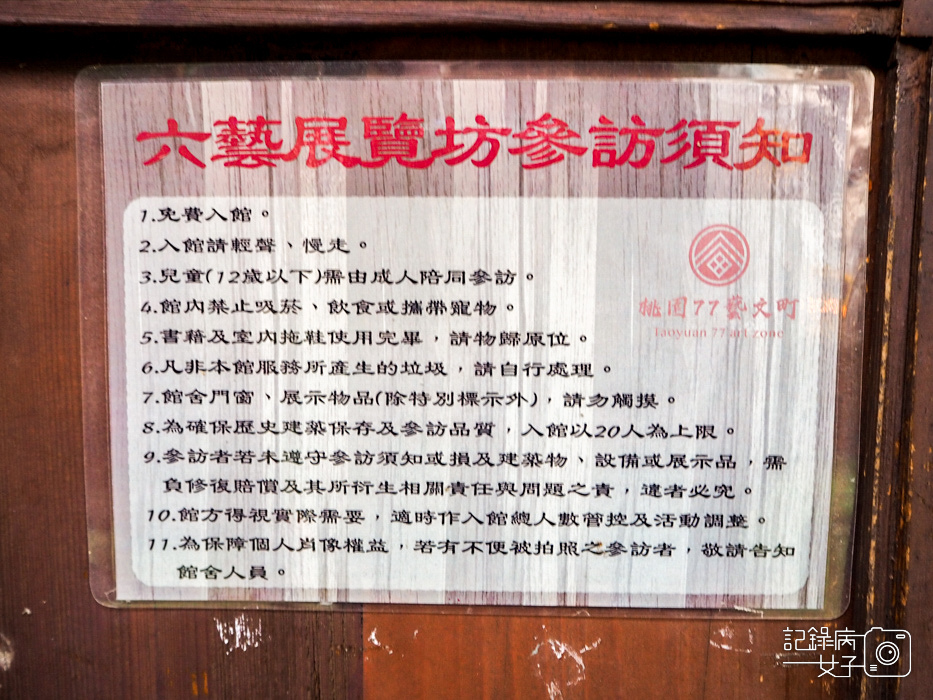 六藝展覽坊參訪須知
1.免費入館。
2.入館請輕聲、慢走。
3.兒童(12歲以下)需由成人陪同參訪。
4.館內禁止吸菸、飲食或攜帶寵物。
5.書籍及室內拖鞋使用完畢，請物歸原位。
6.凡非本館服務所產生的垃圾，請自行處理。
7.館舍門窗、展示物品(除特別標示外)，請勿觸摸。
8.為確保歷史建築保存及參訪品質，入館以20人為上限。
9.參訪者若未遵守參訪須知或損及建築物、設備或展示品，需
負修復賠償及其所衍生相關責任與問題之責，違者必究。
10.館方得視實際需要，適時作入館總人數管控及活動調整。
11.為保障個人肖像權益，若有不便被拍照之參訪者，敬請告知
館舍人員。
桃園77藝文町
Taoyuan 77 art zone
記錄病
女子